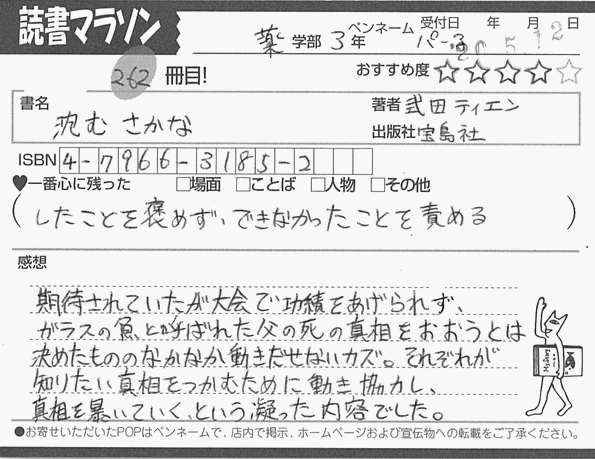 読書マラソン
薬学部 3年
ペンネーム
パーる
受付日 年 月 日
20 5 12
262 冊目!
おすすめ度 ☆☆☆☆☆
書名
沈むさかな
著者 弐田ティエン
出版社 宝島社
ISBN 4-7966-3185-2
♥一番心に残った □場面 □ことば □人物 □その他
(したことを褒めず、できなかったことを責める)
感想
期待されていたが大会で功績をあげられず、
ガラスの魚と呼ばれた父の死の真相をおおうとは
決めたもののなかなか動きだせないカズ。それぞれが
知りたい真相をつかむために動き協力し、
真相を暴いていく、という凝った内容でした。
●お寄せいただいたPOPはペンネームで、店内で掲示、ホームページおよび宣伝物への転載をご了承ください。